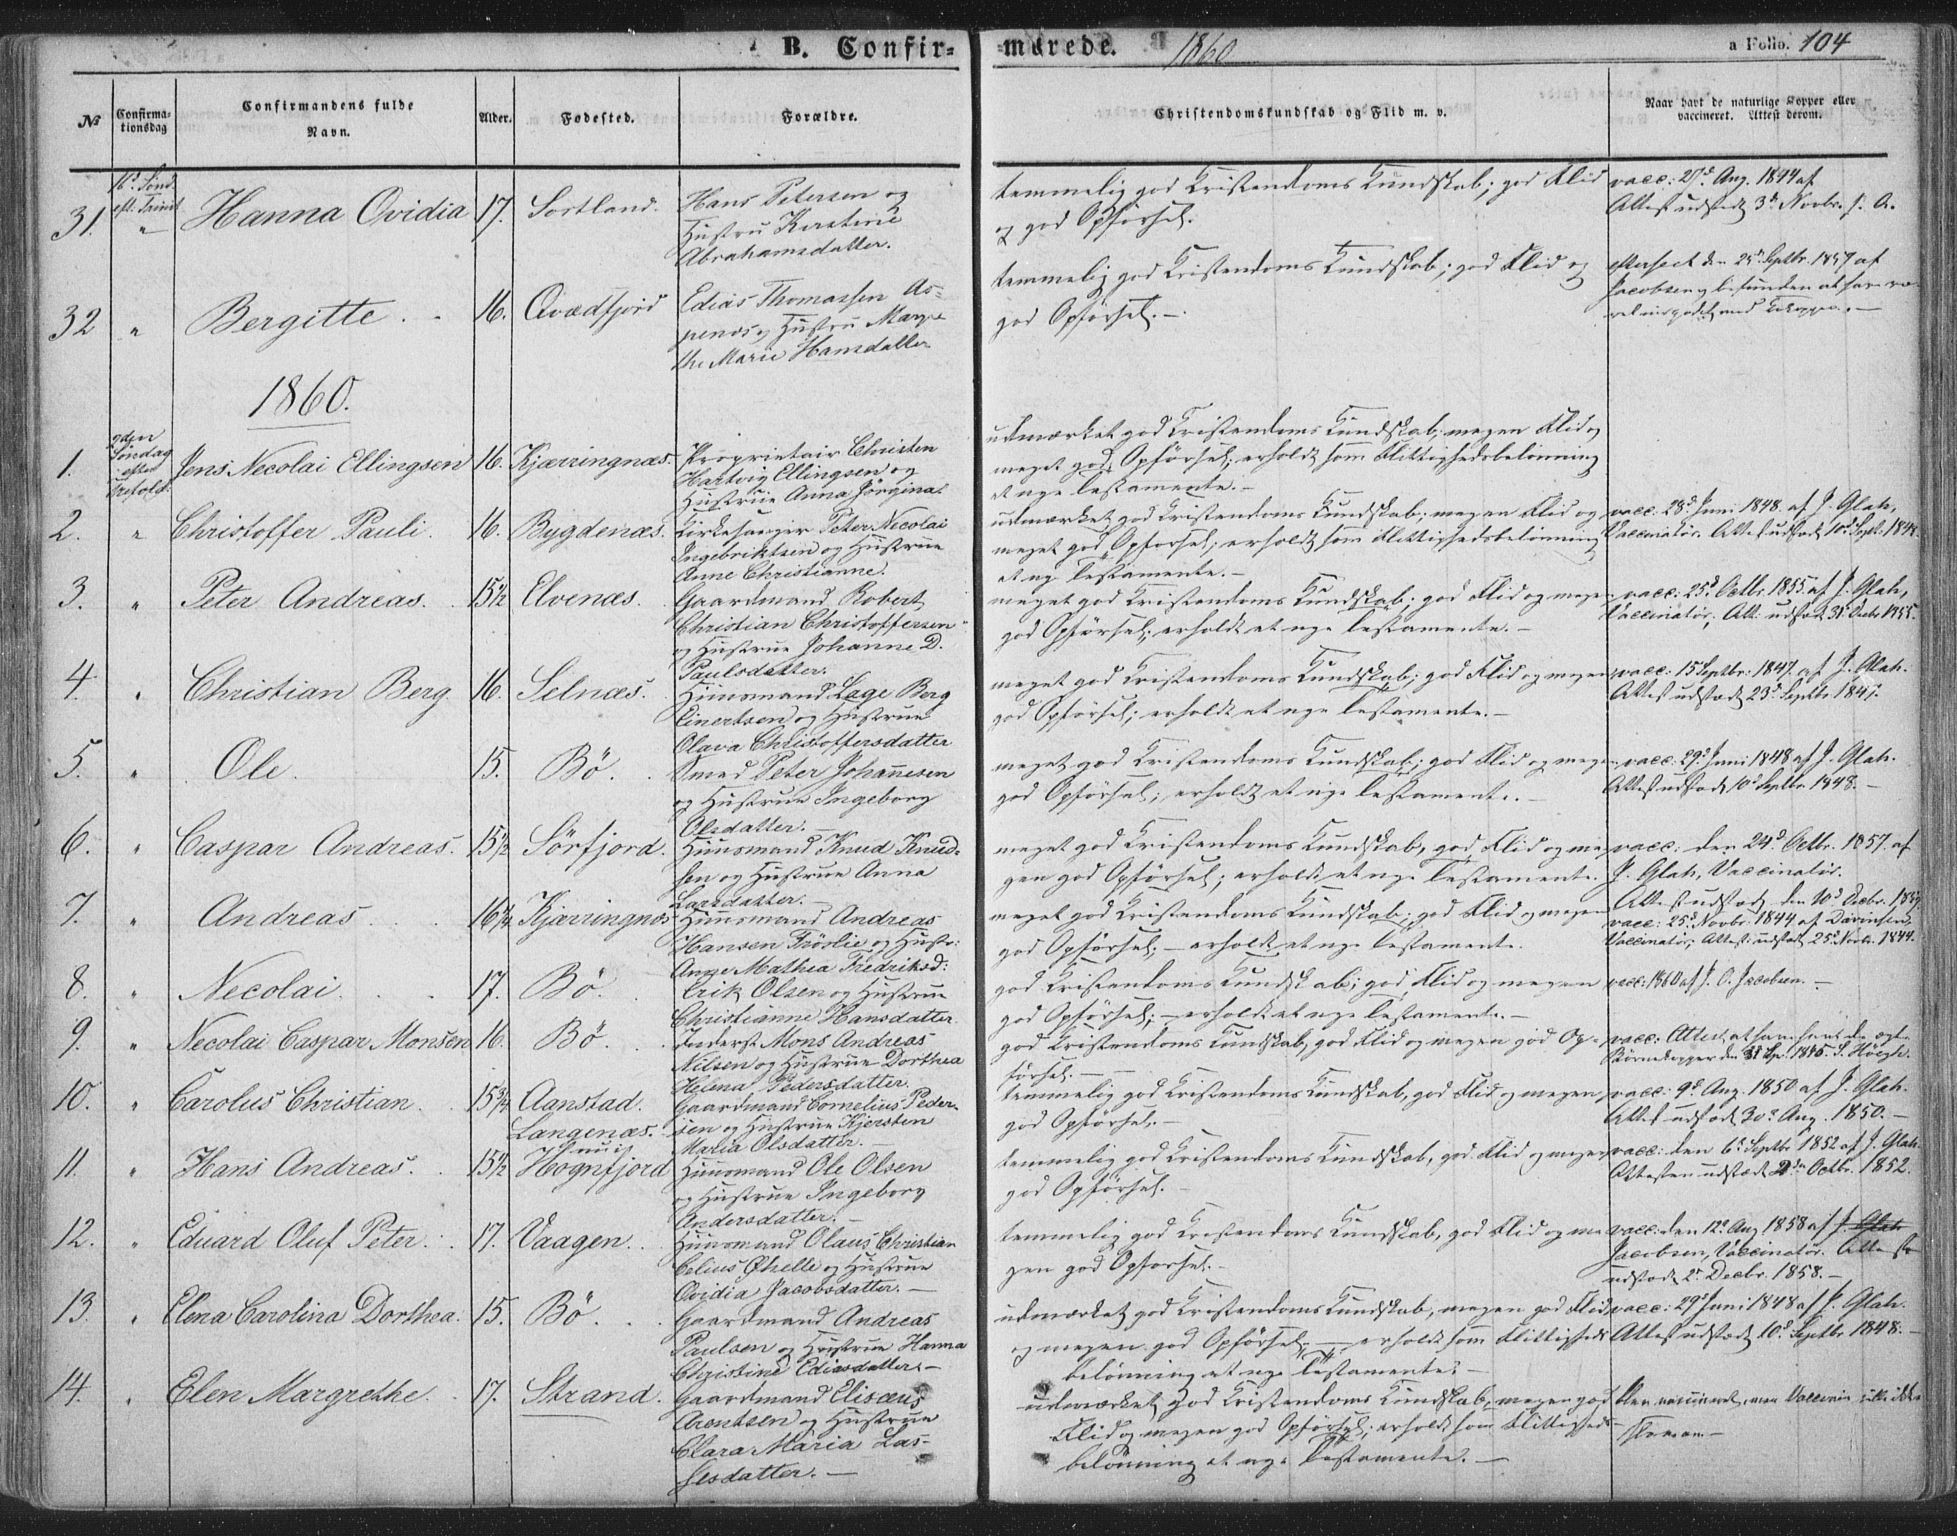 B. Confir-
marede.
1860
a Folio. 104
No
Confirma-
tionsdag
Confirmandens fulde
Navn.
Alder.
Fødested.
Forældre.
Christendomskundskab og Flid m. v.
Naar havt de naturlige Kopper eller
vaccineret. Attest derom.
31. 16d. Sønd. eft. Trinit. " Hanna Ovidia 17. Sortland.
Hans Petersen og
Hustru
Abrahamsdatter.
temmelig god Kristendoms Kundskab; god Flid
og god Opførsel.
vacc: 27d Aug. 1844 af
Attest udstedt 3d Novbr. s. A.
32 " Bergitte 16. Qvædfjord
Edias Thomassen As-
penæs og Hustru Marge-
the Marie Hansdatter
temmelig god Kristendoms Kundskab; god Flid og
god Opførsel.—
efterseet den 25d Septbr. 1857 af
Jacobsen og befunden at have
1860.
1. Søndag efter Jens Necolai Ellingsen 16. Kjærringnæs.
Proprietair Christen
Hartvig Ellingsen og
Hustrue Anna Jørgina.
udmærket god Kristendoms Kundskab; megen Flid og
meget god Opførsel; erholdt som Flittighedsbelønning
et nye Testamente.—
2. " Christoffer Pauli. 16. Bygdenæs.
Kirkesanger Peter Necolai
Ingebriktsen og Hustrue
Anne Christianne.
udmærket god Kristendoms Kundskab; megen Flid og
meget god Opførsel; erholdt som Flittighedsbelønning
et ny Testamente.—
vacc: 28d Juni 1848. af J. Glah,
Vaccinatør. Attest udstedt 10d Sept. 1848
3. " Peter Andreas. 15½ Elvenæs.
Gaardmand Robert
Christian Christoffersen
og Hustrue Johanne D.
Paulsdatter.
meget god Kristendoms Kundskab; god Flid og megen
god Opførsel; erholdt et nye Testamente.—
vacc: 25d Octbr. 1855. af J. Glah,
Vaccinatør; Att: udstedt 31 Octbr 1855.
4. " Christian Berg 16. Selnæs.
Huusmand Lage Berg
Einertsen og Hustrue
Olava Christoffersdatter
meget god Kristendoms Kundskab; god Flid og megen
god Opførsel; erholdt et nye Testamente.—
vacc: 15 Septbr. 1847. af J. Glah.
Attest udstedt 23d Septbr. 1847.
5. " Ole. 15. Bö.
Smed Peter Johannesen
og Hustrue Ingeborg
Olsdatter.—
meget god Kristendoms Kundskab; god Flid og megen
god Opførsel; erholdt et nye Testamente.—
vacc: 29d Juni 1848 af J. Glah.
Attest udstedt 10d Septbr. 1848.—
6. " Caspar Andreas. 15½ Sörfjord.
Huusmand Knud Knud-
sen og Hustrue Anna
Larsdatter.—
meget god Kristendoms Kundskab, god Flid og me-
gen god Opførsel; erholdt et nye Testamente.
vacc: den 24d Octbr. 1857. af
J. Glah, Vaccinatør.
Attest udstedt den 10d Decbr. 1857
7. " Andreas 16¼ Kjærringnæs
Huusmand Andreas
Hansen Frörlie og Hustr:
Anne Mathea Fredriksd:
meget god Kristendoms Kundskab; god Flid og megen
god Opførsel;— erholdt et nye Testamente.
vacc: 25d Novbr. 1844 af
Vaccinatør; Attest: udstedt 25d Novbr. 1844.
8. " Necolai. 17. Bö.
Erik Olsen og Hustrue
Christianne Hansdatter.
god Kristendoms Kundskab; god Flid og megen
god Opførsel;— erholdt et nye Testamente.—
vacc: 1860 af J. O. Jacobsen.—
9. " Necolai Caspar Monsen 16. Bö.
Inderst Mons Andreas
Nilsen og Hustrue Dorthea
Helena Pedersdatter.
god Kristendoms Kundskab, god Flid og megen god Op-
førsel.—
vacc: Attest, at have havt de ægte
Börnekopper den
10. " Carolus Christian. 15¾ Aanstad.
Gaardmand Cornelius Peder-
sen og Hustrue Kjersten
Maria Olsdatter.—
temmelig god Kristendoms Kundskab, god Flid og megen
god Opførsel.—
vacc: 9d Aug. 1850 af J. Glah.
Attest udstedt 30d Aug. 1850.—
11. " Hans Andreas. 15½ Langenæs. Hognfjord
Huusmand Ole Olsen
og Hustrue Ingeborg
Andersdatter.—
temmelig god Kristendoms Kundskab, god Flid og megen
god Opførsel.—
vacc: den 6d Septbr 1852 af J. Glah.
Attesten udstedt 2den Octbr. 1852.
12. " Eduard Oluf Peter. 17. Vaagen.
Huusmand Olaus Christian
Celius Øhelle og Hustrue
Ovidia Jacobsdatter.—
temmelig god Kristendoms Kundskab, god Flid og me-
gen god Opførsel.—
vacc: den 12d Aug 1858 af J. Glah
Jacobsen, Vaccinatør. Attest
udstedt 2d Decbr. 1858.—
13. " Elena Carolina Dorthea. 15. Bö.
Gaardmand Andreas
Paulsen og Hustrue Hanna
Christine Ediasdatter.—
udmærket god Kristendoms Kundskab, megen god Flid
og megen god Opførsel;— erholdt som Flittigheds
belønning et nye Testamente.—
vacc: 29d Juni 1848 af J. Glah.
Attest udstedt 10d Septbr 1848.—
14. " Elen Margrethe. 17. Strand.
Gaardmand Elisæus
Arentsen og Hustrue
Clara Maria Las-
sesdatter.—
udmærket god Kristendoms Kundskab, megen god
Flid og megen god Opførsel; erholdt som Flittigheds-
belønning et nye Testamente.—